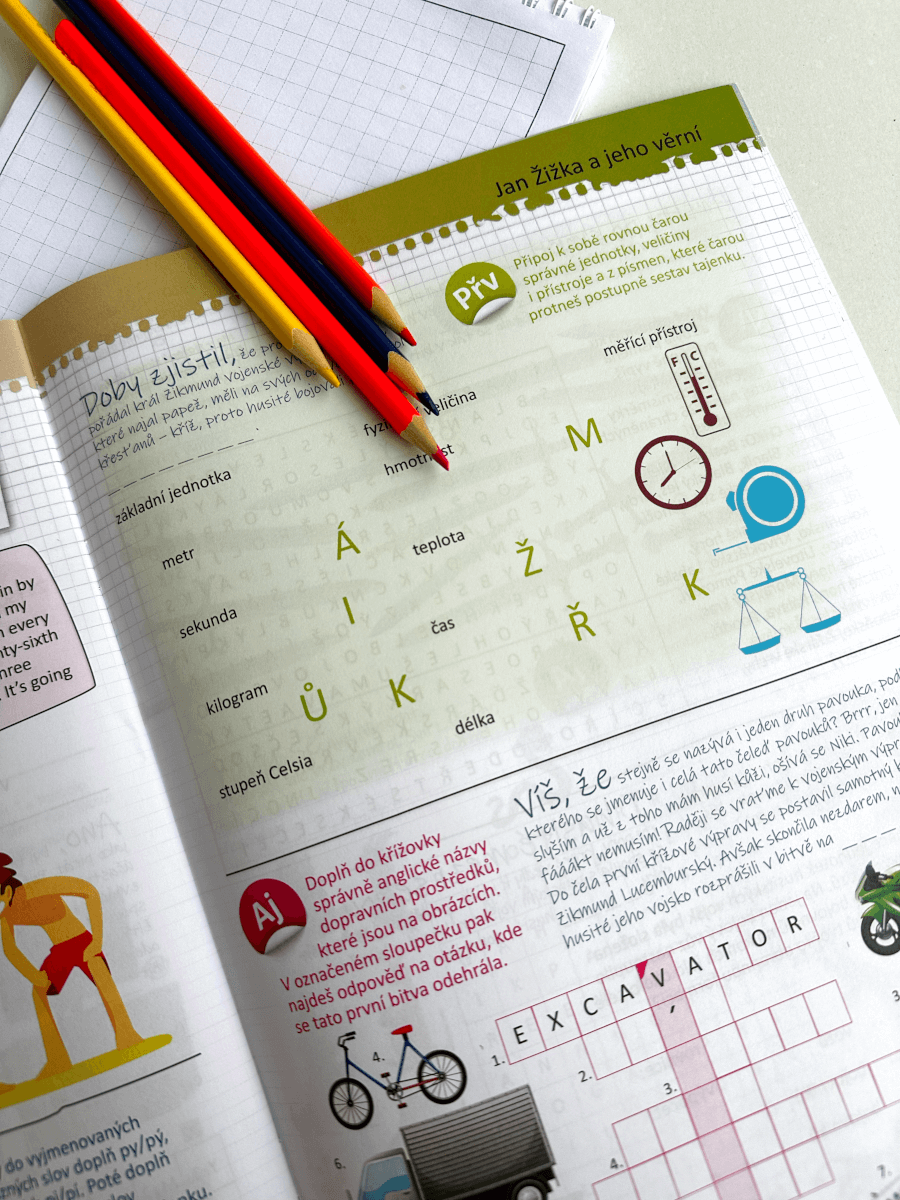 Jan Žižka a jeho věrní
Přv
Připoj k sobě rovnou čarou
správné jednotky, veličiny
i přístroje a z písmen, které čarou
protneš postupně sestav tajenku.
Doby zjistil, že
pořádal král Zikmund vojenské
které najal papež, měli na svých
křesťanů – kříž, proto husité
základní jednotka
veličina
měřící přístroj
F C
metr
sekunda
kilogram
stupeň Celsia
hmotnost
teplota
čas
délka
M
Á
Ž
I
Ř
K
Ů
K
in by
my
every
nty-sixth
three
It's going
Víš, že stejně se nazývá i jeden druh pavouka,
kterého se jmenuje i celá tato čeleď pavouků? Brrr, jen
slyším a už z toho mám husí kůži, ošívá se Niki.
fááákt nemusím! Raději se vraťme k vojenským
Do čela první křížové výpravy se postavil samotný
Zikmund Lucemburský. Avšak skončila nezdarem,
husité jeho vojsko rozprášili v bitvě na
Aj
Doplň do křížovky
správně anglické názvy
dopravních prostředků,
které jsou na obrázcích.
V označeném sloupečku pak
najdeš odpověď na otázku, kde
se tato první bitva odehrála.
1. EXCAVATOR
2.
3.
4.
4.
6.
3.
7.
do vyjmenovaných
slov doplň py/pý,
pi/pí. Poté doplň